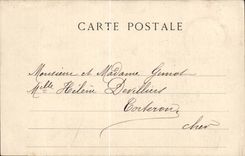 CARTE POSTALE
Monsieur et Madame Genot
Mlle Hélène Devilliers
Torteron
Cher